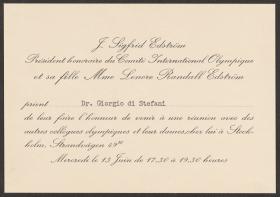 J. Sigfrid Edström
Président honoraire du Comité International Olympique
et sa fille Mme Lenore Randall Edström
prient Dr. Giorgio di Stefani
de leur faire l'honneur de venir à une réunion avec des
autres collègues olympiques et leur dames, chez lui à Stock-
holm, Strandvägen
Mercredi le 13 Juin de 17.30 à 19.30 heures